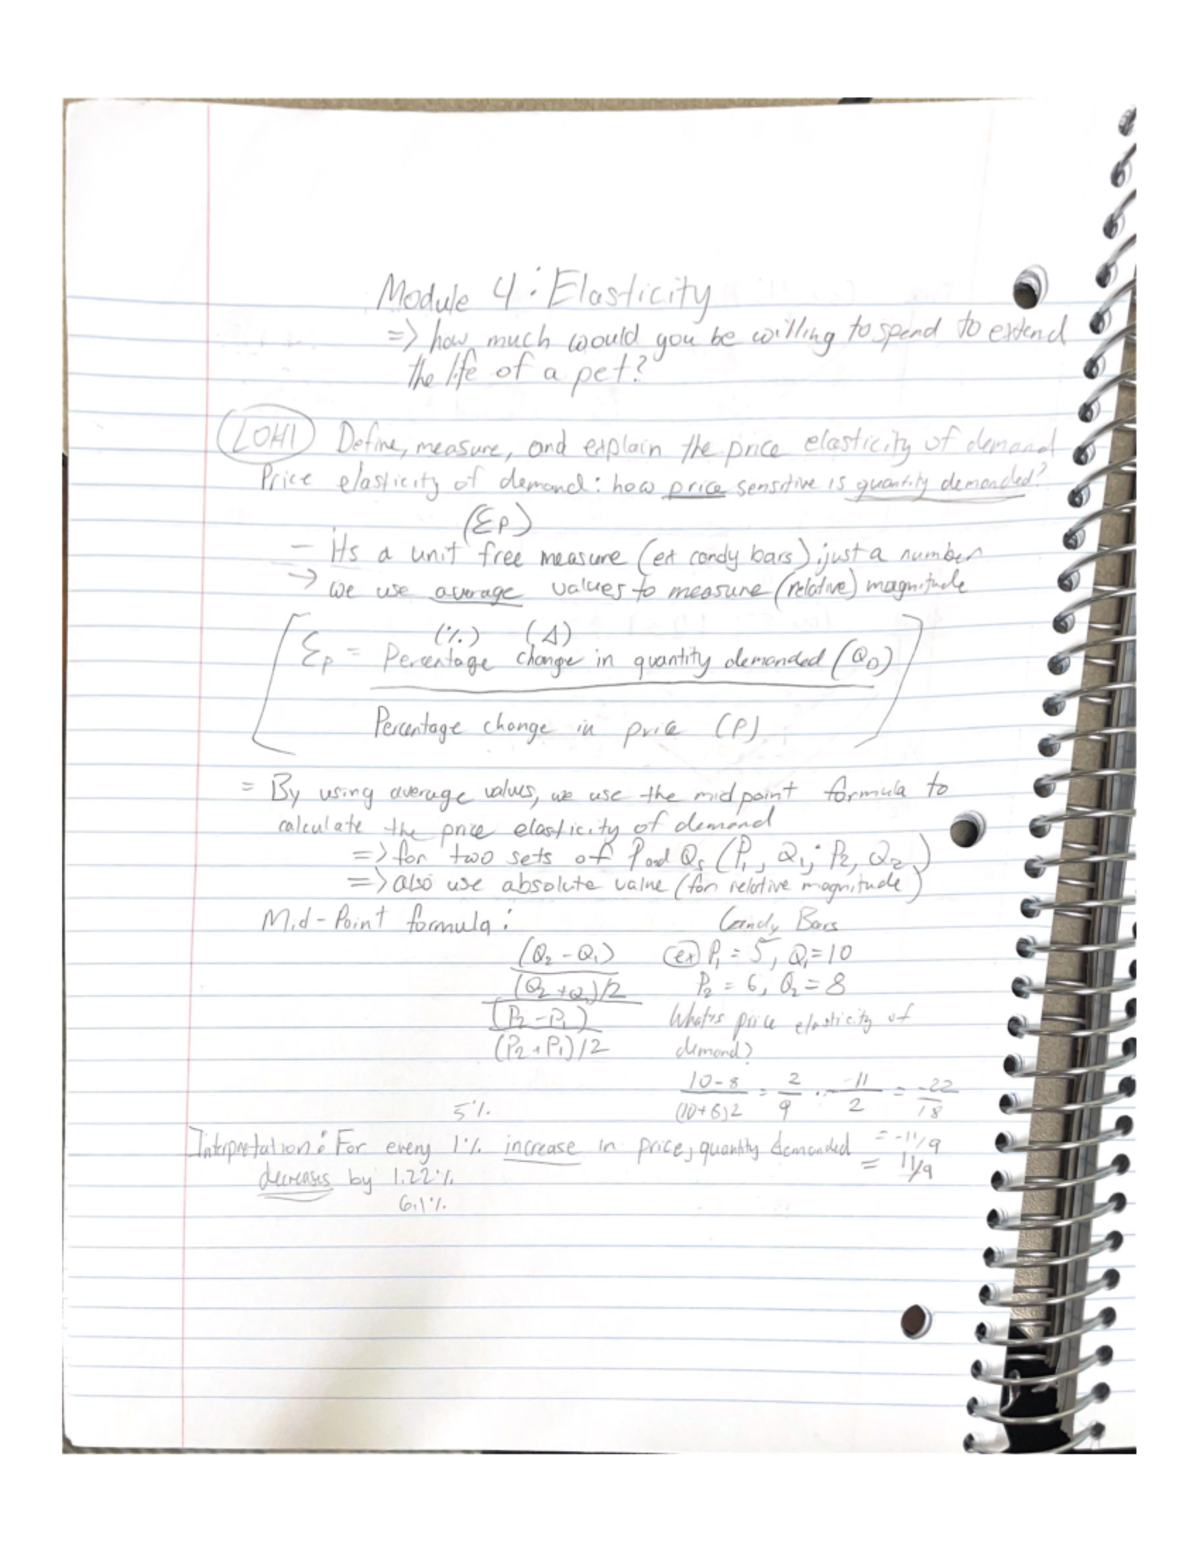 Module 4: Elasticity
=> how much would you be willing to spend to extend
the life of a pet?
LOH1 Define, measure, and explain the price elasticity of demand
Price elasticity of demand: how price sensitive is quantity demanded?
(Σp)
- its a unit free measure (ex candy bars), just a number
-> we use average values to measure (relative) magnitude
(%) (Δ)
Σp = Percentage change in quantity demanded (QD)
Percentage change in price (P)
= By using average values, we use the midpoint formula to
calculate the price elasticity of demand
=> for two sets of P and Qs (P1, Q1; P2, Q2)
=> also use absolute value (for relative magnitude)
Mid-Point formula: Candy Bars
(Q2 - Q1) (ex) P1 = 5, Q1 = 10
(Q2 + Q1)/2 P2 = 6, Q2 = 8
(P2 - P1) What's price elasticity of
(P2 + P1)/2 demand?
10-8 / (10+8)2 = 2/9 · -11/2 = -22/18
5%
Interpretation: For every 1% increase in price, quantity demanded = -11/9
decreases by 1.22% = 11/9
6.1%